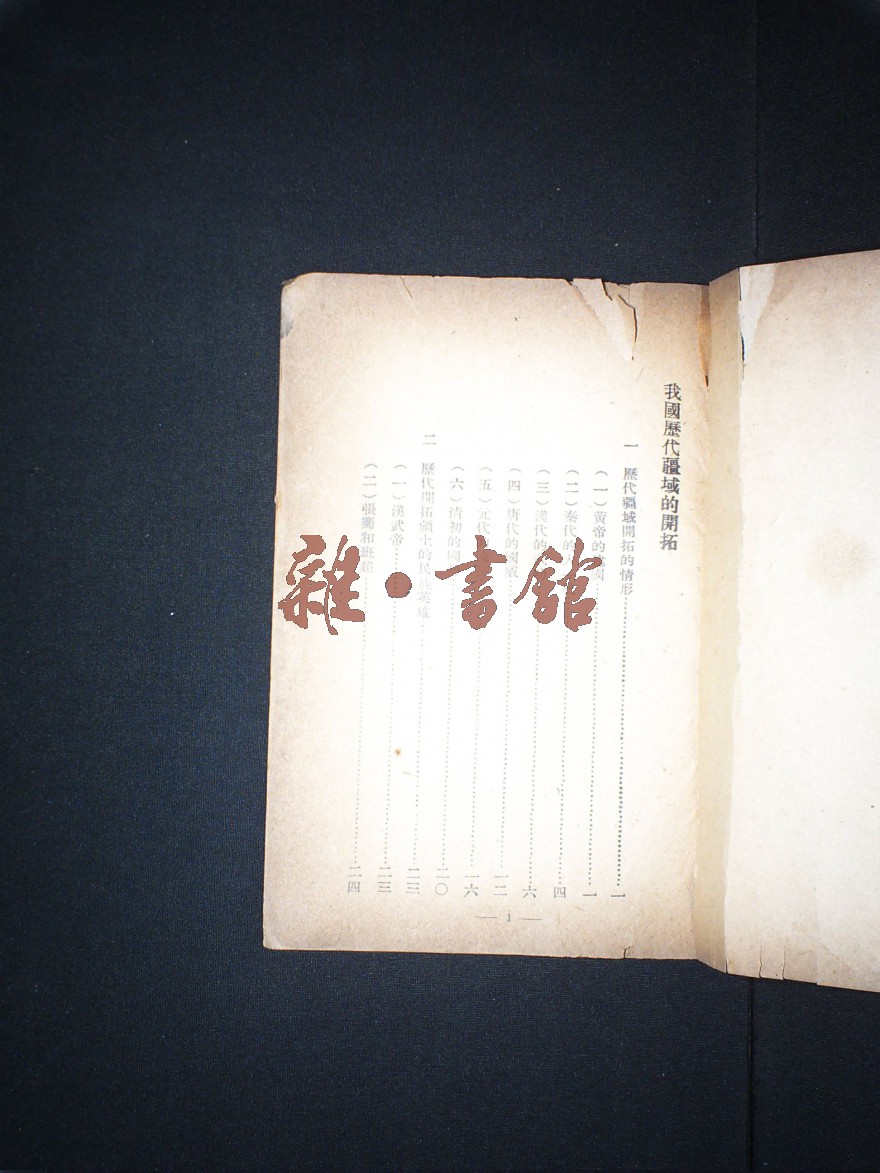 我國歷代疆域的開拓
一 歷代疆域開拓的情形……一
（一）黃帝的 國……一
（二）秦代的……四
（三）漢代的……六
（四）唐代的國威……一二
（五）元代……一六
（六）清初的國……二〇
二 歷代開拓領土的民族英雄……二三
（一）漢武帝……二三
（二）張騫和班超……二四
— 1 —
雜·書館